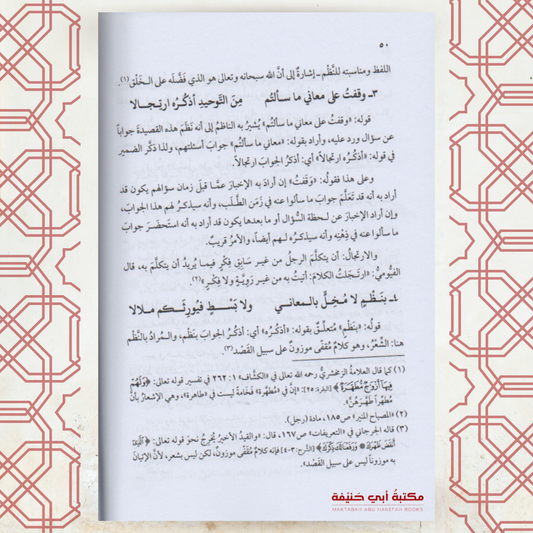 ٥٠
اللفظ ومناسبته للنَّظْم ـ إشارةً إلى أنَّ الله سبحانه وتعالى هو الذي فَضَّلَه على الخَلْق(١).
٣ـ وقفتُ على معاني ما سألتُم مِنَ التَّوحيدِ أذكُرُه ارتجالا
قوله: «وقفتُ على معاني ما سألتُم» يُشيرُ به الناظمُ إلى أنه نَظَمَ هذه القصيدةَ جواباً
عن سؤال ورد عليه، وأراد بقوله: «معاني ما سألتُم» جوابَ أسئلتهم، ولذا ذكَّر الضمير
في قوله: «أذكُرُه ارتجالاً» أي: أذكرُ الجوابَ ارتجالاً.
وعلى هذا فقولُه: «وَقَفتُ» إن أرادَ به الإخبارَ عمَّا قبلَ زمان سؤالهم يكون قد
أراد به أنه قد تَعَلَّمَ جوابَ ما سألوا عنه في زَمَنِ الطَّلَب، وأنه سيذكرُ لهم هذا الجوابَ،
وإن أراد الإخبارَ عن لحظة السُّؤال أو ما بعدها يكون قد أراد به أنه استَحضَرَ جوابَ
ما سألوا عنه في ذِهْنِه وأنه سيذكرُه لهم أيضاً، والأمرُ قريبٌ.
والارتجالُ: أن يتكلَّمَ الرجلُ من غيرِ سابقِ فِكْرٍ فيما يُريدُ أن يتكلَّمَ به، قال
الفيُّوميُّ: «ارتَجَلتُ الكلامَ: أتيتُ به من غيرِ رَوِيَّةٍ ولا فِكْرٍ»(٢).
٤ـ بنَظْمٍ لا مُخِلٍّ بالمعاني ولا بَسْطٍ فيُورثَكم ملالا
قولُه: «بنَظْمٍ» مُتعلِّقٌ بقوله: «أذكُرُه» أي: أذكُرُ الجوابَ بنَظْم، والمُرادُ بالنَّظْم
هنا: الشِّعْرُ، وهو كلامٌ مُقفًّى موزونٌ على سبيل القَصْد(٣).
(١) كما قال العلامةُ الزمخشريُّ رحمه الله تعالى في «الكشَّاف» ١: ٢٦٢ في تفسير قوله تعالى: ﴿وَلَهُمْ
فِيهَا أَزْوَاجٌ مُطَهَّرَةٌ﴾ [البقرة: ٢٥]: «إنَّ في «مُطهَّرة» فَخامةً ليست في «طاهرة»، وهي الإشعارُ بأنَّ
مُطهِّراً طَهَّرَهُنَّ».
(٢) «المصباح المنير» ص١٨٥، مادة (رجل).
(٣) قاله الجرجاني في «التعريفات» ص١٦٧، قال: «والقيدُ الأخيرُ يُخرِجُ نحوَ قولِه تعالى: ﴿الَّذِي
أَنقَضَ ظَهْرَكَ * وَرَفَعْنَا لَكَ ذِكْرَكَ﴾ [الشَّرح: ٣-٤] فإنه كلامٌ مُقفًّى موزونٌ، لكن ليس بشعر، لأنَّ الإتيانَ
به موزوناً ليس على سبيل القَصْد».
مكتبة أبي حنيفة
MAKTABAH ABU HANIFAH BOOKS